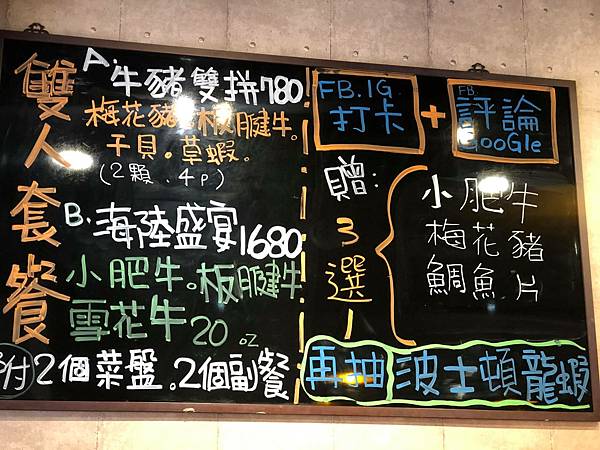 雙人套餐
A.牛豬雙拼780
梅花豬.板腱牛。
干貝。草蝦。
(2顆.4p)
B.海陸盛宴1680
小肥牛。板腱牛
雪花牛20oz
附2個菜盤。2個副餐
FB.IG.
打卡
+
FB.
評論
GooGle
贈:
3選1
小肥牛
梅花豬
鯛魚片
再抽波士頓龍蝦